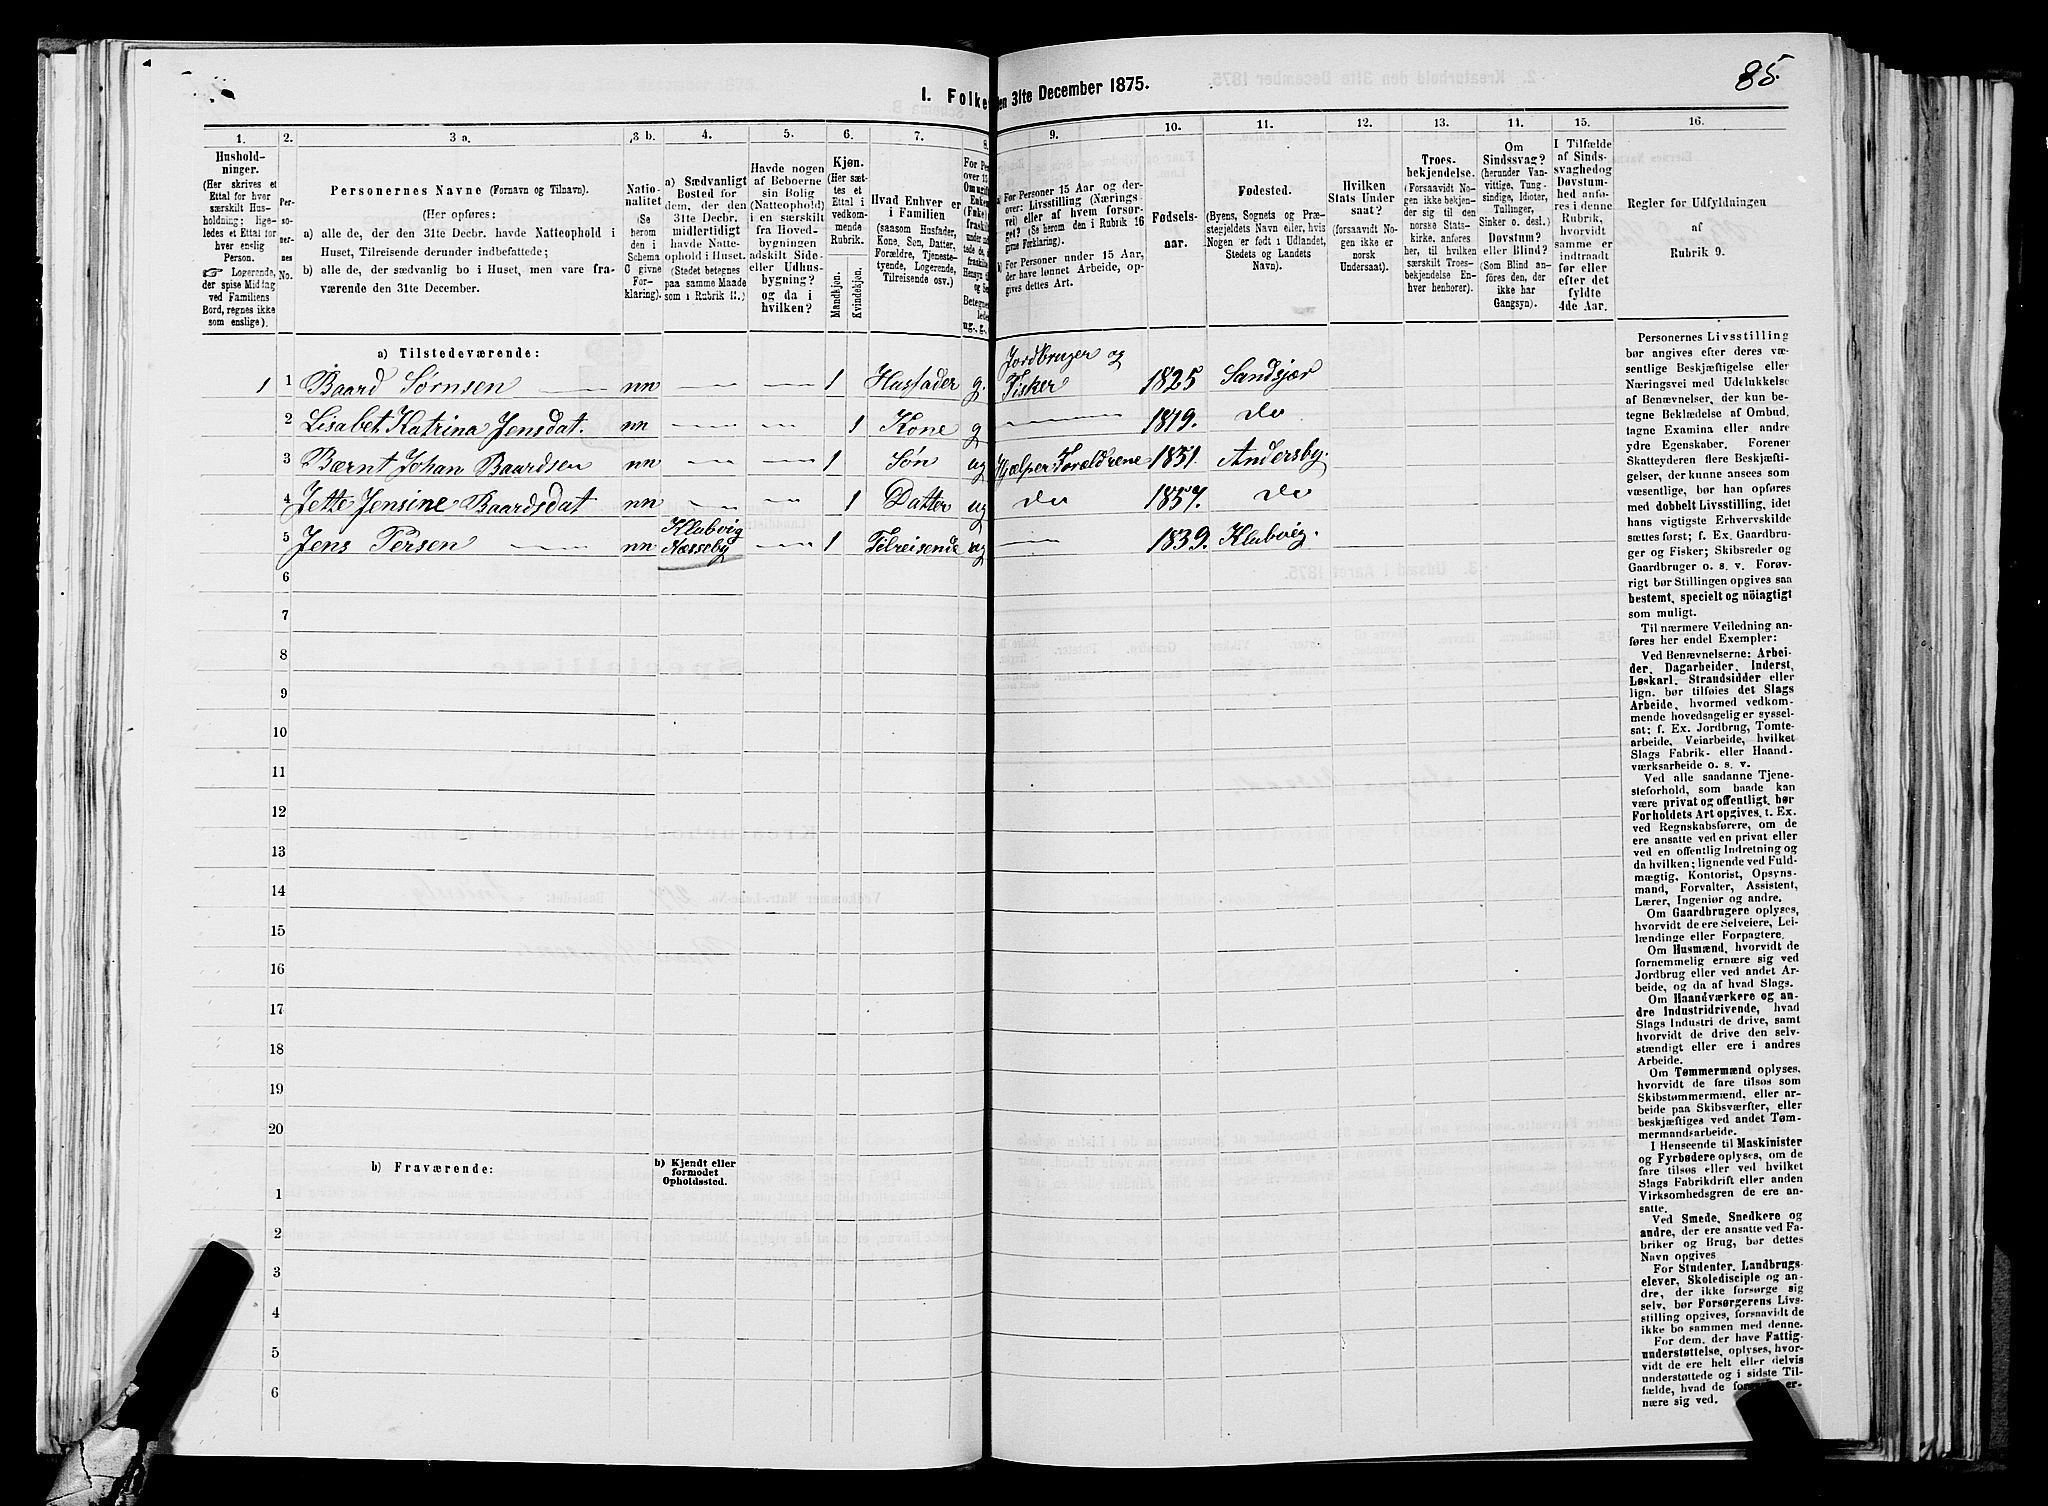 85.
I. Folke
en 31te December 1875.
1. 2. 3 a. 3 b. 4. 5. 6. 7. 8. 9. 10. 11. 12. 13. 14. 15. 16.
Hushold-
ninger.
(Her skrives et
Ettal for hver
særskilt Hus-
holdning; lige-
ledes et Ettal for
hver enslig
Person.
☞ Logerende,
der spise Middag
ved Familiens
Bord, regnes ikke
som enslige).
Per-
so-
ner-
nes
No.
Personernes Navne (Fornavn og Tilnavn).
(Her opføres:
a) alle de, der den 31te Decbr. havde Natteophold i
Huset, Tilreisende derunder indbefattede;
b) alle de, der sædvanlig bo i Huset, men vare fra-
værende den 31te December.
Natio-
nalitet
(Se
herom
den i
Schema
C givne
For-
klaring).
a) Sædvanligt
Bosted for
dem, der den
31te Decbr.
midlertidigt
havde Natte-
ophold i Huset.
(Stedet betegnes
paa samme Maade
som i Rubrik 11.)
Havde nogen
af Beboerne
sin Bolig
(Natteophold)
i en særskilt
fra Hoved-
bygningen
adskilt Side-
eller Udhus-
bygning?
og da i
hvilken?
Kjøn.
(Her sæt-
tes et
Ettal i
vedkom-
mende
Rubrik.
Mandkjøn.
Kvindekjøn.
Hvad Enhver er
i Familien
(saasom Husfader,
Kone, Søn, Datter,
Forældre, Tjeneste-
tyende, Logerende,
Tilreisende osv.)
a) For Personer 15 Aar og der-
over: Livsstilling (Nærings-
vei) eller af hvem forsør-
get? (Se herom den i Rubrik 16
givne Forklaring).
b) For Personer under 15 Aar,
der have lønnet Arbeide, op-
gives dettes Art.
Fødsels-
aar.
Fødested.
(Byens, Sognets og Præ-
stegjeldets Navn eller, hvis
Nogen er født i Udlandet,
Stedets og Landets
Navn).
Hvilken
Stats Under
saat?
(forsaavidt No-
gen ikke er
norsk
Undersaat).
Troes-
bekjendelse.
(Forsaavidt No-
gen ikke bekjen-
der sig til den
norske Stats-
kirke, anføres
her, til hvilken
særskilt Troes-
bekjendelse En-
hver henhører).
Om
Sindssvag?
(herunder Van-
vittige, Tung-
sindige, Idioter,
Tullinger,
Sinker o. desl.)
Døvstum?
eller Blind?
(Som Blind an-
føres den, der
ikke har
Gangsyn).
I Tilfælde
af Sinds-
svaghed og
Døvstum-
hed anfø-
res i denne
Rubrik,
hvorvidt
samme er
indtraadt
før eller
efter det
fyldte
4de Aar.
Regler for Udfyldningen
af
Rubrik 9.
a) Tilstedeværende:
1 1 Baard Sørnsen nn 1 Husfader g. Jordbruger og Fisker 1825 Sandsjær
2 Lisabet Katrina Jensdat. nn 1 Kone g 1819. Do
3 Bærnt Johan Baardsen nn 1 Søn ug Hjælper Forældrene 1851. Andersby.
4 Jette Jensine Baardsdat nn 1 Datter ug Do 1857. Do
5 Jens Persen nn Klubvig Næsseby 1 Tilreisende ug 1839. Klubvig.
6
7
8
9
10
11
12
13
14
15
16
17
18
19
20
b) Fraværende:
b) Kjendt eller
formodet
Opholdssted.
1
2
3
4
5
6
Personernes Livsstilling
bør angives efter deres væ-
sentlige Beskjæftigelse eller
Næringsvei med Udelukkelse
af Benævnelser, der kun be-
tegne Beklædelse af Ombud,
tagne Examina eller andre
ydre Egenskaber. Forener
Skatteyderen flere Beskjæfti-
gelser, der kunne ansees som
væsentlige, bør han opføres
med dobbelt Livsstilling, idet
hans vigtigste Erhvervskilde
sættes først; f. Ex. Gaardbru-
ger og Fisker; Skibsreder og
Gaardbruger o. s. v. Forøv-
rigt bør Stillingen opgives saa
bestemt, specielt og nöiagtigt
som muligt.
Til nærmere Veiledning an-
føres her endel Exempler:
Ved Benævnelserne: Arbei-
der, Dagarbeider, Inderst,
Løskarl, Strandsidder eller
lign. bør tilføies det Slags
Arbeide, hvormed vedkom-
mende hovedsagelig er syssel-
sat; f. Ex. Jordbrug, Tomte-
arbeide, Veiarbeide, hvilket
Slags Fabrik- eller Haand-
værksarbeide o. s. v.
Ved alle saadanne Tjene-
steforhold, som baade kan
være privat og offentligt, bør
Forholdets Art opgives, t. Ex.
ved Regnskabsførere, om de
ere ansatte ved en privat eller
ved en offentlig Indretning og
da hvilken; lignende ved Fuld-
mægtig, Kontorist, Opsyns-
mand, Forvalter, Assistent,
Lærer, Ingeniør og andre.
Om Gaardbrugere oplyses,
hvorvidt de ere Selveiere, Lei-
lændinge eller Forpagtere.
Om Husmænd, hvorvidt de
fornemmelig ernære sig ved
Jordbrug eller ved andet Ar-
beide, og da af hvad Slags.
Om Haandværkere og an-
dre Industridrivende, hvad
Slags Industri de drive, samt
hvorvidt de drive den selv-
stændigt eller ere i andres
Arbeide.
Om Tømmermænd oplyses,
hvorvidt de fare tilsøs som
Skibstømmermænd, eller ar-
beide paa Skibsværfter, eller
beskjæftiges ved andet Tøm-
mermandsarbeide.
I Henseende til Maskinister
og Fyrbødere oplyses, om de
fare tilsøs eller ved hvilket
Slags Fabrikdrift eller anden
Virksomhedsgren de ere an-
satte.
Ved Smede, Snedkere og
andre, der ere ansatte ved Fa-
briker og Brug, bør dettes
Navn opgives
For Studenter, Landbrugs-
elever, Skoledisciple og an-
dre, der ikke forsørge sig
selv, bør Forsørgerens Livs-
stilling opgives, forsaavidt de
ikke bo sammen med denne.
For dem, der have Fattig-
understøttelse, oplyses, hvor-
vidt de ere helt eller delvis
understøttede og i sidste Til-
fælde, hvad de er-
nære sig ved.